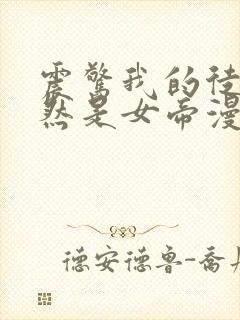 震驚我的徒
然是女帝漫
德安德鲁-喬